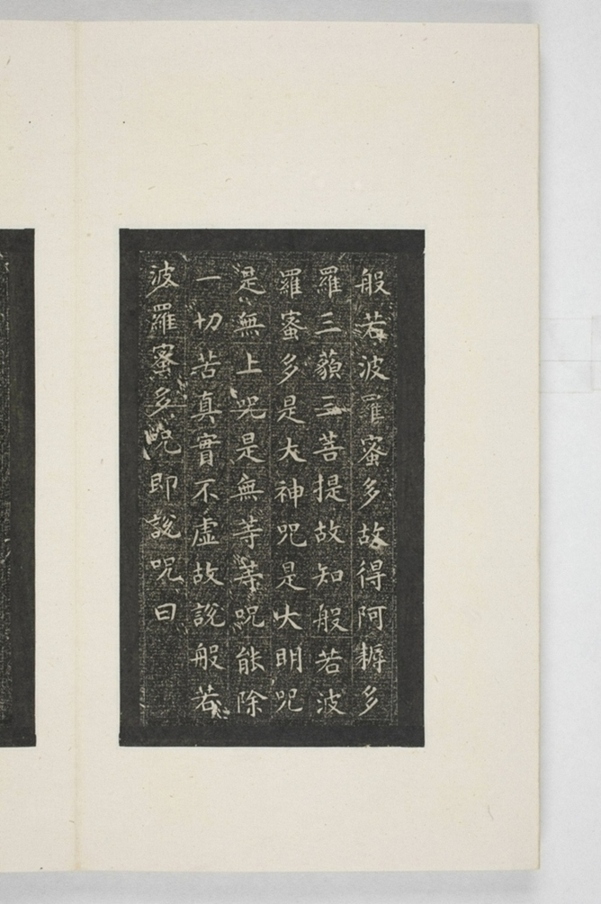 般若波羅蜜多故得阿耨多
羅三藐三菩提故知般若波
羅蜜多是大神咒是大明咒
是無上咒是無等等咒能除
一切苦真實不虛故說般若
波羅蜜多咒即說咒曰